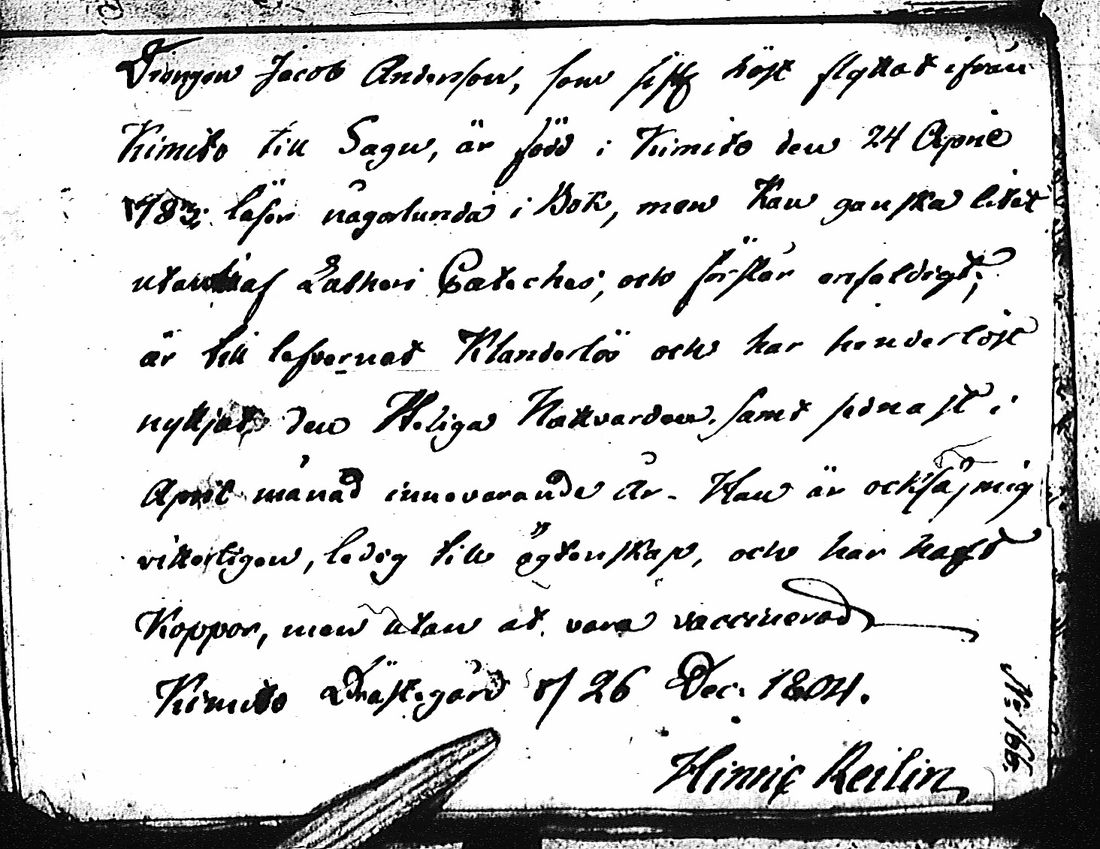 Drängen Jacob Andersson, som sistl. höst flyttat ifrån
Kimito till Sagu, är född i Kimito den 24 April
1783; läser någorlunda i Bok, men kan ganska litet
utantil af Lutheri Cateches, och förstår enfaldigt;
är till lefvernat Klanderlös och har hinderlöst
nyttjat den Heliga Nattvarden samt sednast i
April månad innevarande år. Han är också, mig
vitterligen, ledig till ägtenskap, och har haft
Koppor, men utan at vara vaccinerad
Kimito Prästegård d/ 26 Dec: 1804.
Hinric Reilin
No 166.